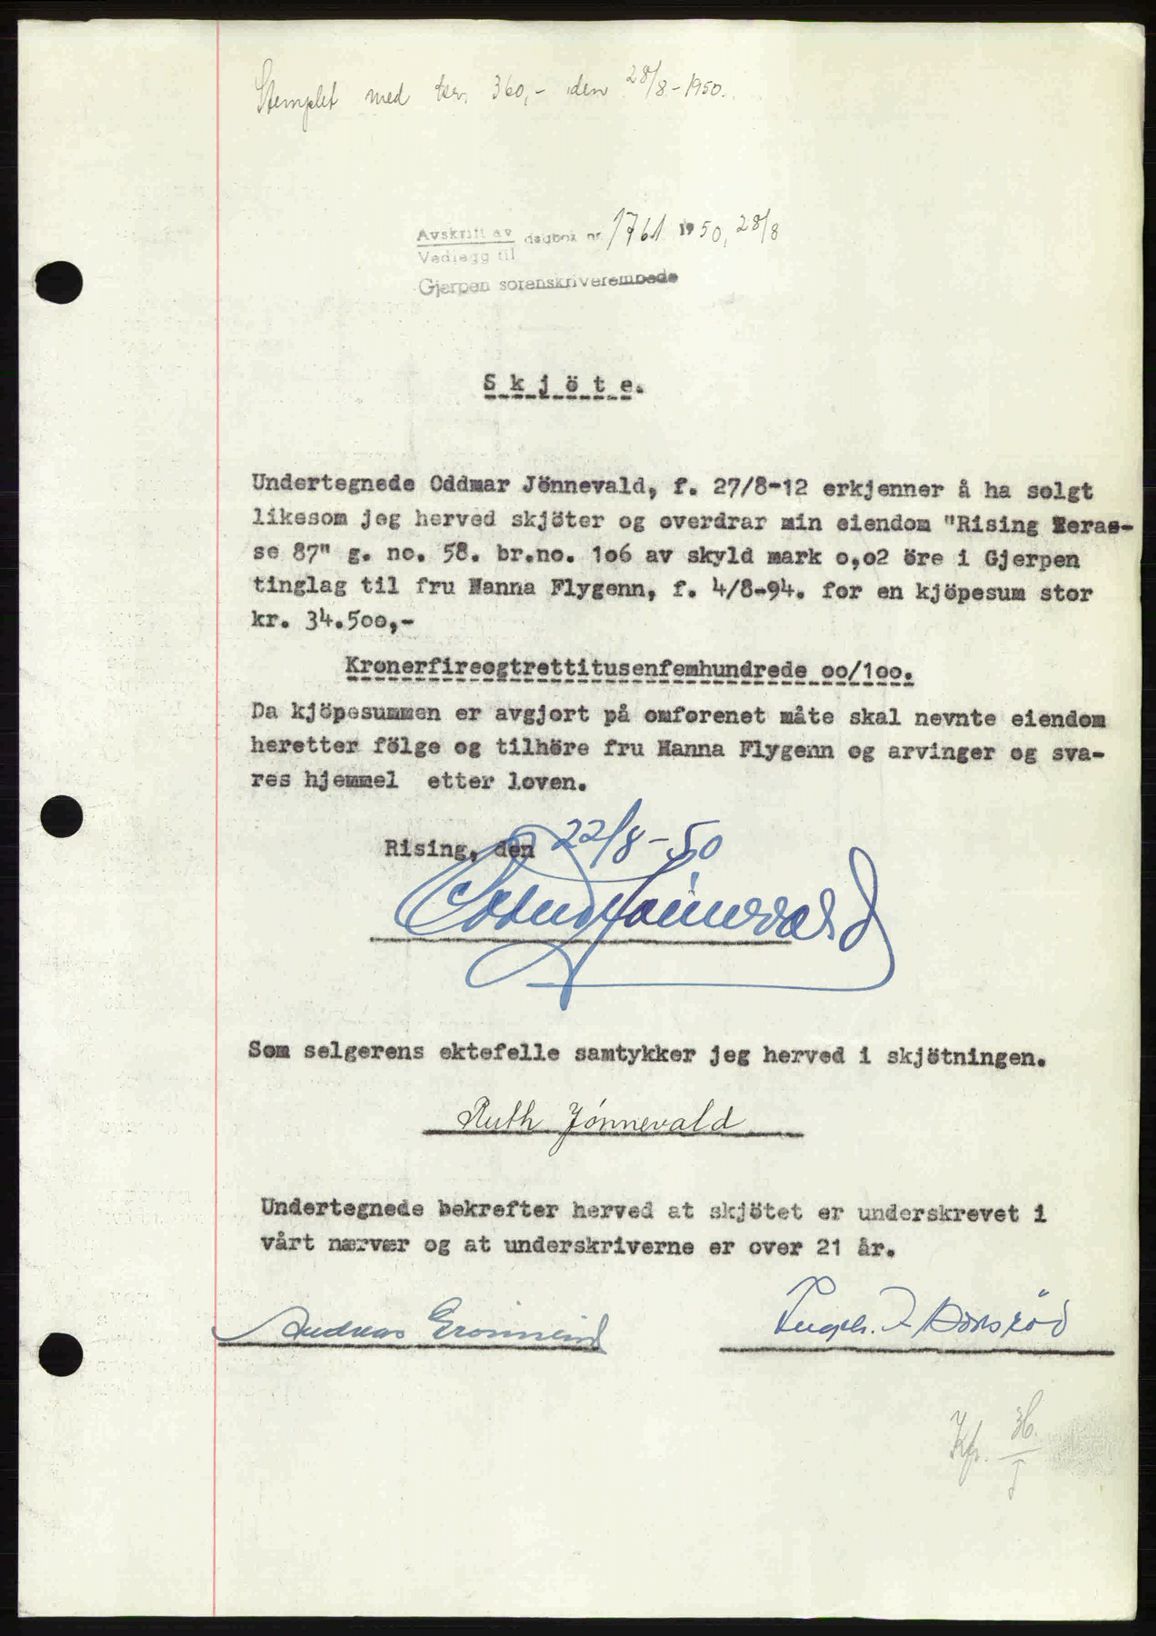 Stemplet med kr. 360,- den 28/8-1950.
Avskrift av dagbok nr. 1761 1950, 28/8
Vedlegg til
Gjerpen sorenskriverembede
Skjöte.
Undertegnede Oddmar Jönnevald, f. 27/8-12 erkjenner å ha solgt
likesom jeg herved skjöter og overdrar min eiendom "Rising Teras-
se 87" g. no. 58. br.no. 106 av skyld mark 0,02 öre i Gjerpen
tinglag til fru Hanna Flygenn, f. 4/8-94. for en kjöpesum stor
kr. 34.500,-
Kronerfireogtrettitusenfemhundrede 00/100.
Da kjöpesummen er avgjort på omforenet måte skal nevnte eiendom
heretter fölge og tilhöre fru Hanna Flygenn og arvinger og sva-
res hjemmel etter loven.
Rising, den 22/8-50
Oddmar Jönnevald
Som selgerens ektefelle samtykker jeg herved i skjötningen.
Ruth Jönnevald
Undertegnede bekrefter herved at skjötet er underskrevet i
vårt nærvær og at underskriverne er over 21 år.
Andreas
Kfr. 36.